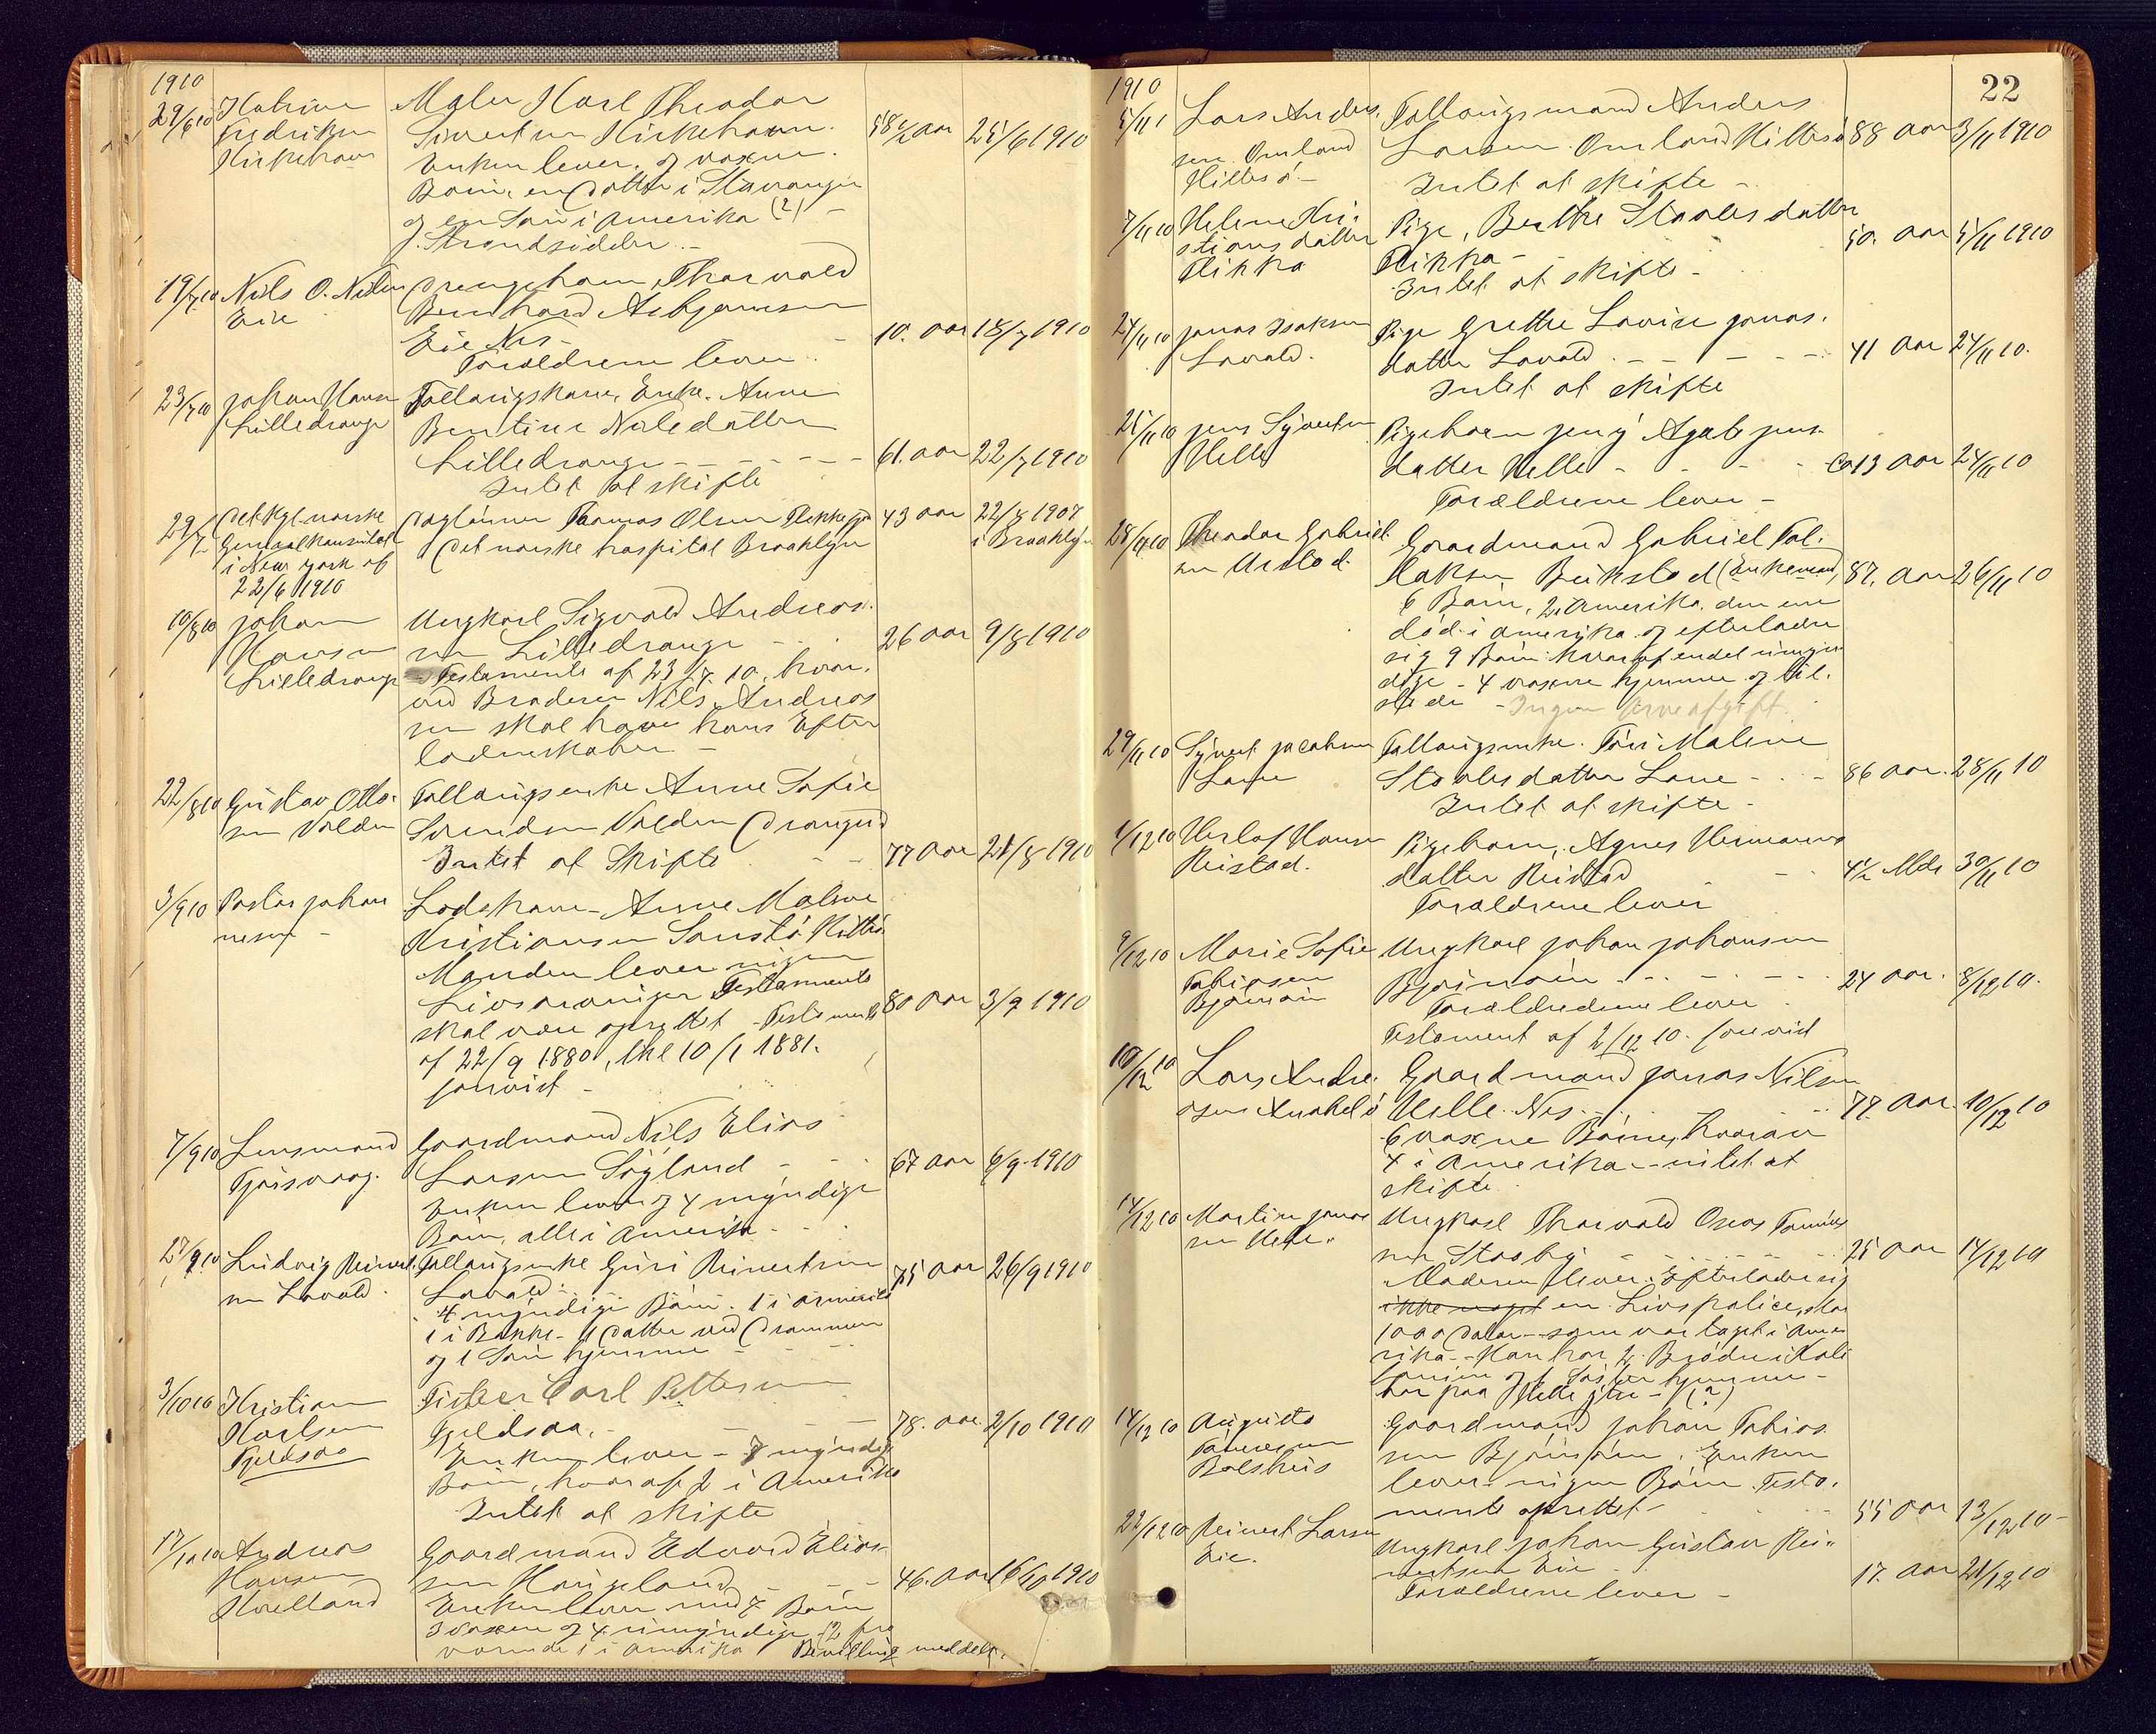 1910
29/6 10 Katrine Maler Karl Theodor
Fredriksen Sivertsen Kirkehavn. 58 1/2 aar 25/6 1910
Kirkehavn Enken lever, og voxne
Børn, en Datter i Stavanger
og en Søn i Amerika (?) -
Strandsidder. -
19/7 10 Nils O. Nilsen Drengebarn, Thorvald
Eie Bernhard Asbjørnsen
Eie Nes - 10. aar 18/7 1910
Forældrene lever.
23/7 10 Johan Hansen Fattigskone, Enke. Anne
Lilledrange Bentine Nilsdatter
Lilledrange - - - - - 61. aar 22/7 1910
Intet at skifte
29/7 Det kgl. norske Daglønner Thomas Olsen Flekkefjo 43 aar 22/8 1907
Generalkonsulat Det norske hospital Brooklyn i Brooklyn
i New York af
22/6 1910
10/8 10 Johan Ungkarl Sigvald Andreas-
Hansen sen Lilledrange 26 aar 9/8 1910
Lilledrange - Testamente af 23/7 10. hvor-
ved Broderen Nils Andreas
sen skal have hans Efter
ladenskaber -
22/8 10 Gustav Otto- Fattigenke Anne Sofie
sen Valden Svendsen Valden Drangeid
Intet at skifte - - 77 aar 21/8 1910
3/9 10 Pastor Johan Lodskone - Anne Malene
nesen - Kristiansen Sanstø Hitterø
Manden lever ingen
Livsarvinger Testamente
skal være oprettet - Testamente 80 aar 3/9 1910
af 22/9 1880, lhl 10/1 1881.
forevist -
7/9 10 Lensmand Gaardmand Nils Elias
Tjørsvaag. Larsen Søyland - - 67 aar 6/9 1910
Enken lever og 4 myndige
Børn, alle i Amerika -
27/9 10 Ludvig Reinert- Fattigenke Guri Reinertsen
sen Lavold. Lavold 75 aar 26/9 1910
4 myndige Børn. 1 i Amerika
1 i Bakke - 1 Datter ved Drammen
og 1 Søn hjemme -
3/10 10 Kristian Fisker Carl Pettersen
Karlsen Fjeldsaa. - - - 78. aar 2/10 1910
Fjeldsaa Enken lever - 7 myndige
Børn, hvoraf 2 i Amerika
Intet at skifte
17/10 10 Andreas Gaardmand Edvard Elias-
Hansen sen Haugeland - - 46. aar 16/10 1910
Hoelland Enken lever med 7 Børn
3 voxne og 4 umyndige, 2 fra
værende 1 i Amerika Bevilling meddelt.
22
1910
5/11 Lars Anders- Fattigmand Anders
sen Omland Larsen Omland Hitterø 88 aar 3/11 1910
Hitterø - Intet at skifte -
7/11 10 Helene Kri- Pige, Berthe Staalesdatter
stiansdatter Flikka - 50. aar 5/11 1910
Flikka Intet at skifte -
24/11 10 Jonas Isaksen Pige Grethe Lovise Jonas-
Lavold. datter Lavold. - - - 41 aar 24/11 10.
Intet at skifte
25/11 10 Jens Syvertsen Pigebarn Jeny Agate Jens-
Helle datter Helle - - - Ca 13 aar 24/11 10
Forældrene lever -
28/11 10 Theodor Gabriel- Gaardmand Gabriel Tol-
sen Urstad. laksen Beikstad (Enkemand) 87. aar 26/11 10
6 Børn, 2 i Amerika, den ene
død i Amerika og efterlader
sig 9 Børn hvoraf endel umyn
dige - 4 voxne hjemme og til-
stede - Ingen Arveafgift
29/11 10 Syvert Jacobsen Fattigenke. Tøri Malene
Lane Staalesdatter Lane - - 86 aar. 28/11 10
Intet at skifte -
1/12 10 Herlof Hansen Pigebarn, Agnes Hermanns
Reistad. datter Reistad 4 1/2 Mdr 30/11 10
Forældrene lever
9/12 10 Marie Sofie Ungkarl Johan Johansen
Tobiasen Bjørnøen - - - 24 aar. 8/12 10.
Bjørnøen Forældrene lever.
Testament af 2/12 10. forevist
10/12 10 Lars Andre- Gaardmand Jonas Nilsen
asen Anabelø Helle. Nes. - - 77. aar. 10/12 10
6 voxne Børn, hvorav
4 i Amerika - intet at
skifte
14/12 10 Martin Jonas Ungkarl Thorvald Oscar Tønnes
sen Helle. sen Stosby - - - 25 aar 14/12 10
Moderen lever. Efterlader sig
ikke noget en Livspolice, stor
1000 Dalar - som var taget i Ame
rika. - Han har 2 Brødre i Kali
fornien og 1 Søster hjemme -
bor paa Helle - (?)
14/12 10 Augusta Gaardmand Johan Tobias
Tønnesen sen Bjørnøen. Enken
Bolshuis lever - ingen Børn. Testa-
mente oprettet - 55 aar 13/12 10 -
22/12 10 Reinert Larsen Ungkarl Johan Gustav Rei-
Eie. nertsen Eie - 17. aar 21/12 10
Forældrene lever -